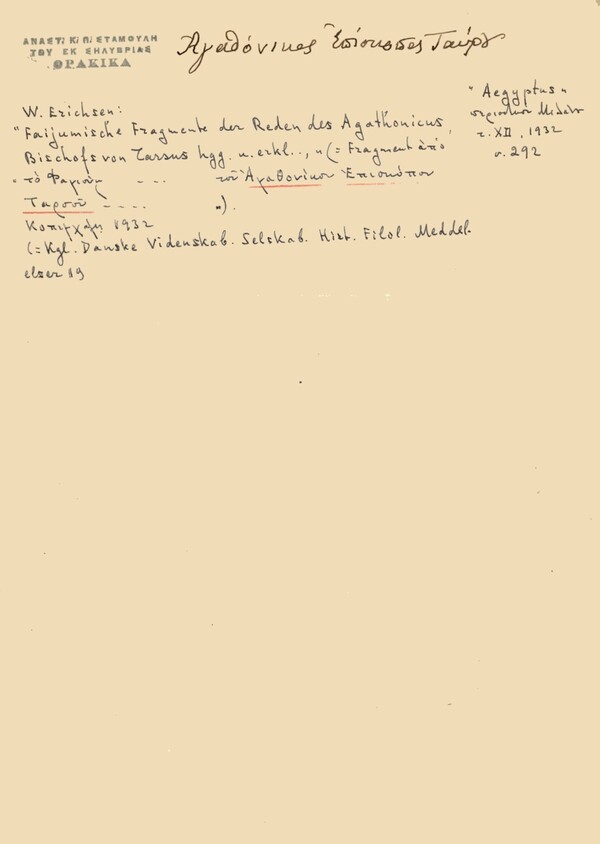 ΑΝΑΣΤ. Κ. Π. ΣΤΑΜΟΥΛΗ
ΤΟΥ ΕΚ ΣΗΛΥΒΡΙΑΣ
ΘΡΑΚΙΚΑ
Ἀγαθόνικος Ἐπίσκοπος Ταρσοῦ
"Aegyptus"
περιοδικὸν Μιλάνου
τ. XII, 1932
σ. 292
W. Erichsen:
"Faijumische Fragmente der Reden des Agathonicus,
Bischofs von Tarsus hgg. u. erkl..," (= Fragment ἀπὸ
τὸ Φαγιούμ --- τοῦ Ἀγαθονίκου Ἐπισκόπου
Ταρσοῦ ---- ").
Κοπεγχάγη 1932
(= Kgl. Danske Videnskab. Selskab. Hist. Filol. Meddel.
elser 19